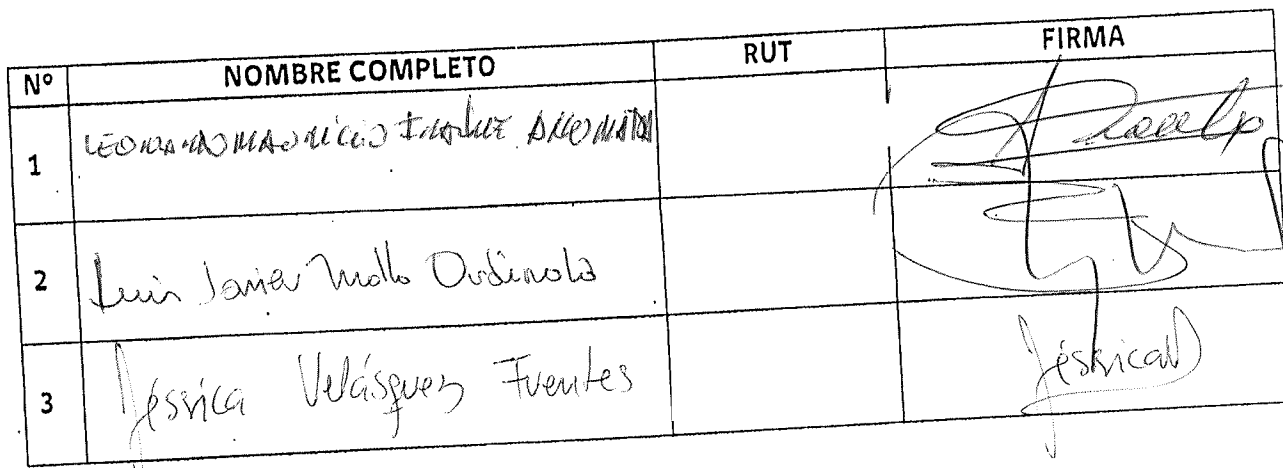 Nº NOMBRE COMPLETO RUT FIRMA
1 LEONARDO MAURICIO
2 Luis Javier Mollo Ordinola
3 Jéssica Velásquez Fuentes JéssicaV